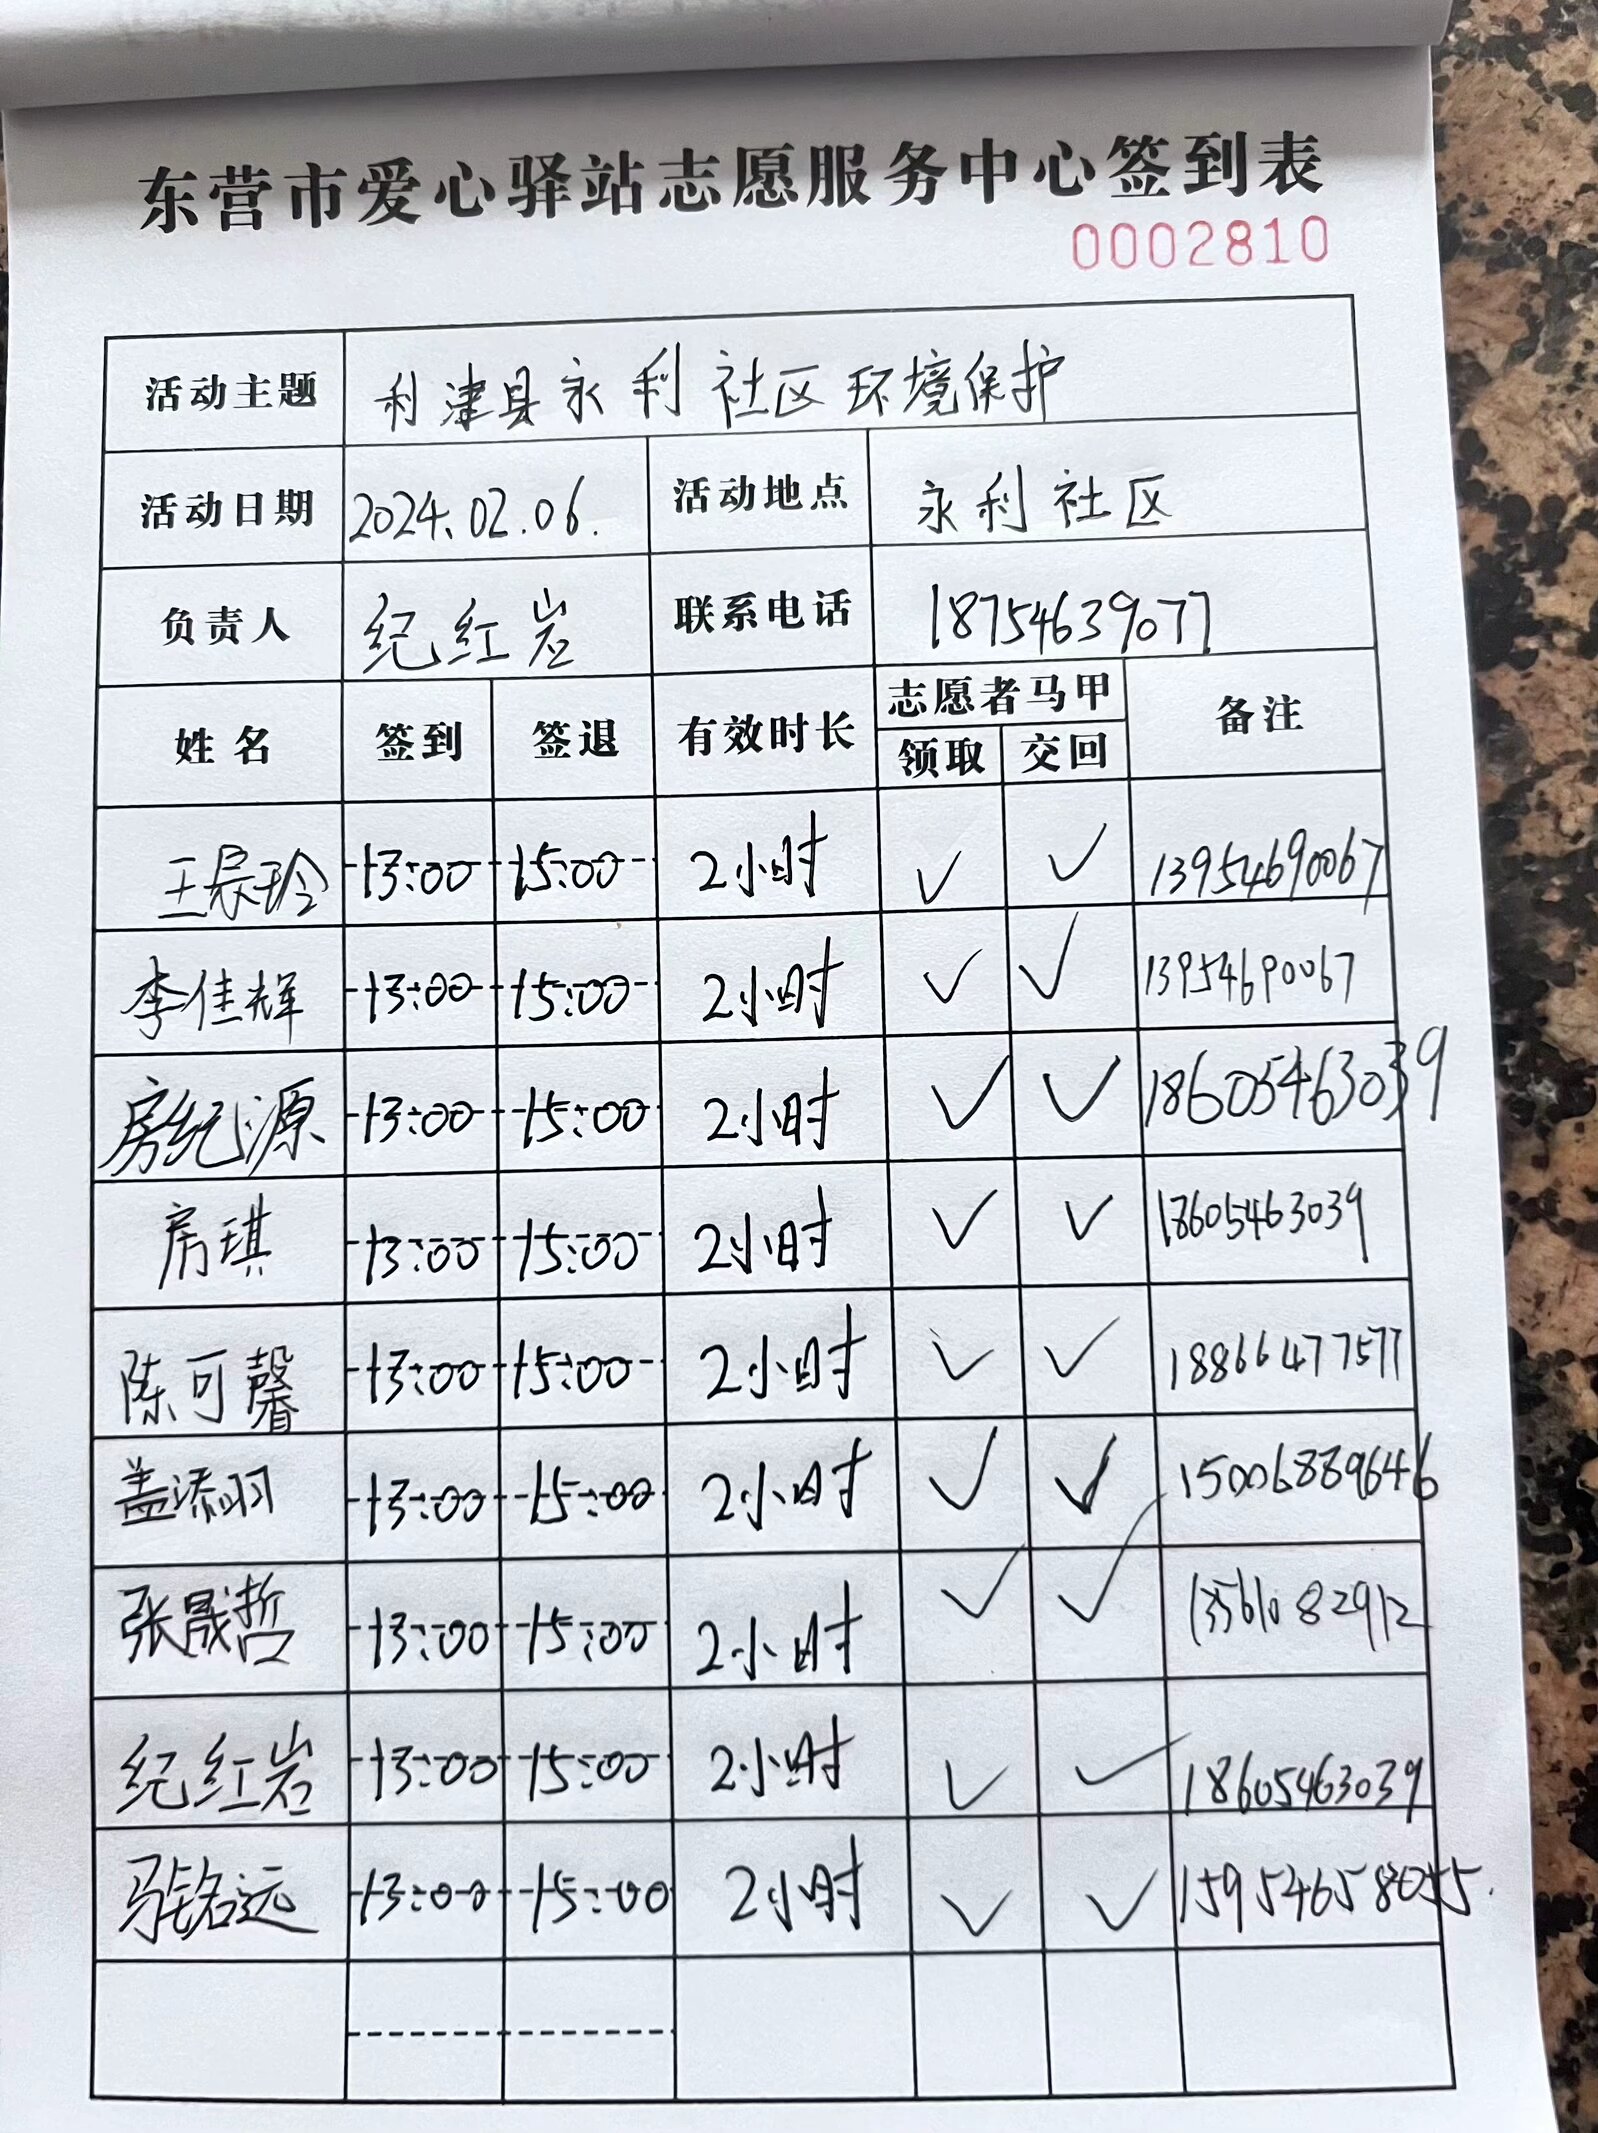 东营市爱心驿站志愿服务中心签到表
0002810
活动主题 利津县永利社区环境保护
活动日期 2024.02.06. 活动地点 永利社区
负责人 纪红岩 联系电话 18754639077
姓名 签到 签退 有效时长 志愿者马甲 领取 交回 备注
王晨玲 13:00 15:00 2小时 ✓ ✓ 13954690067
李佳辉 13:00 15:00 2小时 ✓ ✓ 13954690067
房纪源 13:00 15:00 2小时 ✓ ✓ 18605463039
房琪 13:00 15:00 2小时 ✓ ✓ 18605463039
陈可馨 13:00 15:00 2小时 ✓ ✓ 18866477577
盖添羽 13:00 15:00 2小时 ✓ ✓ 15006889646
张晟哲 13:00 15:00 2小时 ✓ ✓ 13561082912
纪红岩 13:00 15:00 2小时 ✓ ✓ 18605463039
马铭远 13:00 15:00 2小时 ✓ ✓ 15954658055.